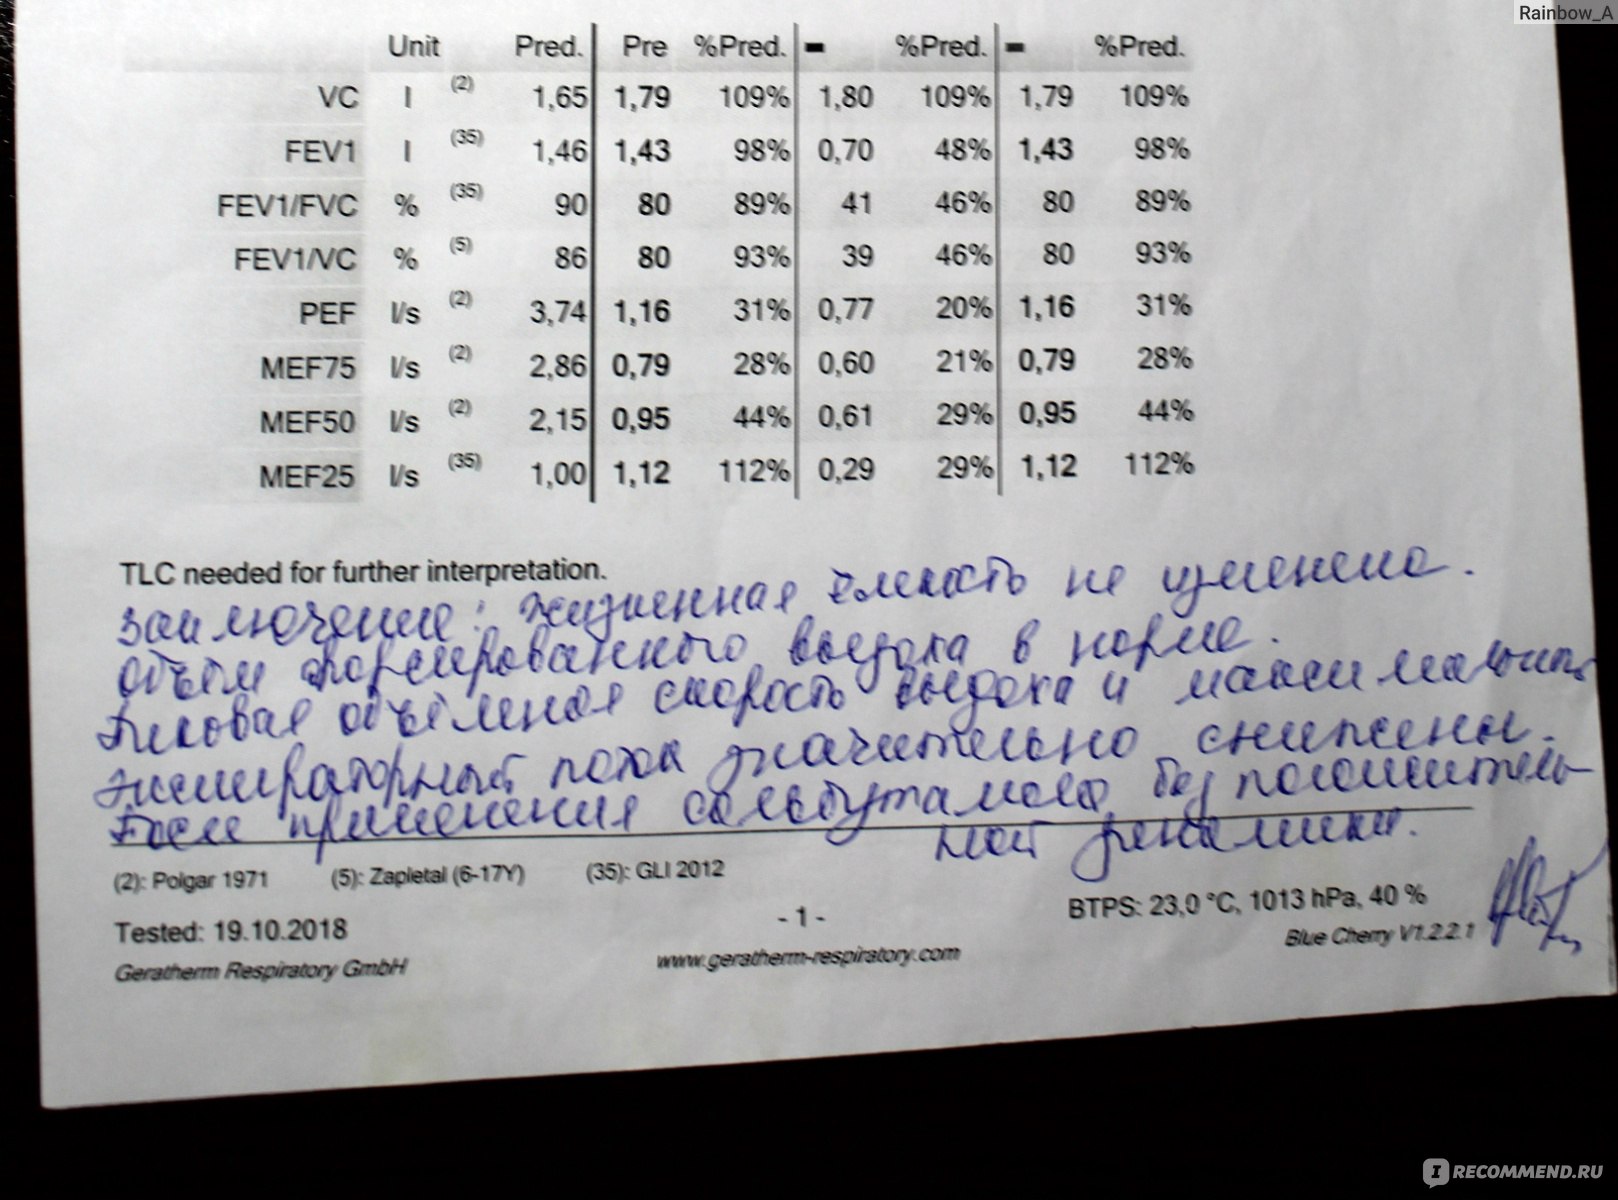 Rainbow_A
Unit Pred. Pre %Pred. - %Pred. - %Pred.
VC l (2) 1,65 1,79 109% 1,80 109% 1,79 109%
FEV1 l (35) 1,46 1,43 98% 0,70 48% 1,43 98%
FEV1/FVC % (35) 90 80 89% 41 46% 80 89%
FEV1/VC % (5) 86 80 93% 39 46% 80 93%
PEF l/s (2) 3,74 1,16 31% 0,77 20% 1,16 31%
MEF75 l/s (2) 2,86 0,79 28% 0,60 21% 0,79 28%
MEF50 l/s (2) 2,15 0,95 44% 0,61 29% 0,95 44%
MEF25 l/s (35) 1,00 1,12 112% 0,29 29% 1,12 112%
TLC needed for further interpretation.
Заключение: Жизненная ёмкость не изменена.
Объём формированного выдоха в норме.
Пиковая объёмная скорость выдоха и максимальный
экспираторный поток значительно снижены.
После применения сальбутамола без положитель-
ной динамики.
(2): Polgar 1971 (5): Zapletal (6-17Y) (35): GLI 2012
Tested: 19.10.2018 - 1 - BTPS: 23,0 °C, 1013 hPa, 40 %
Geratherm Respiratory GmbH www.geratherm-respiratory.com Blue Cherry V1.2.2.1
IRECOMMEND.RU